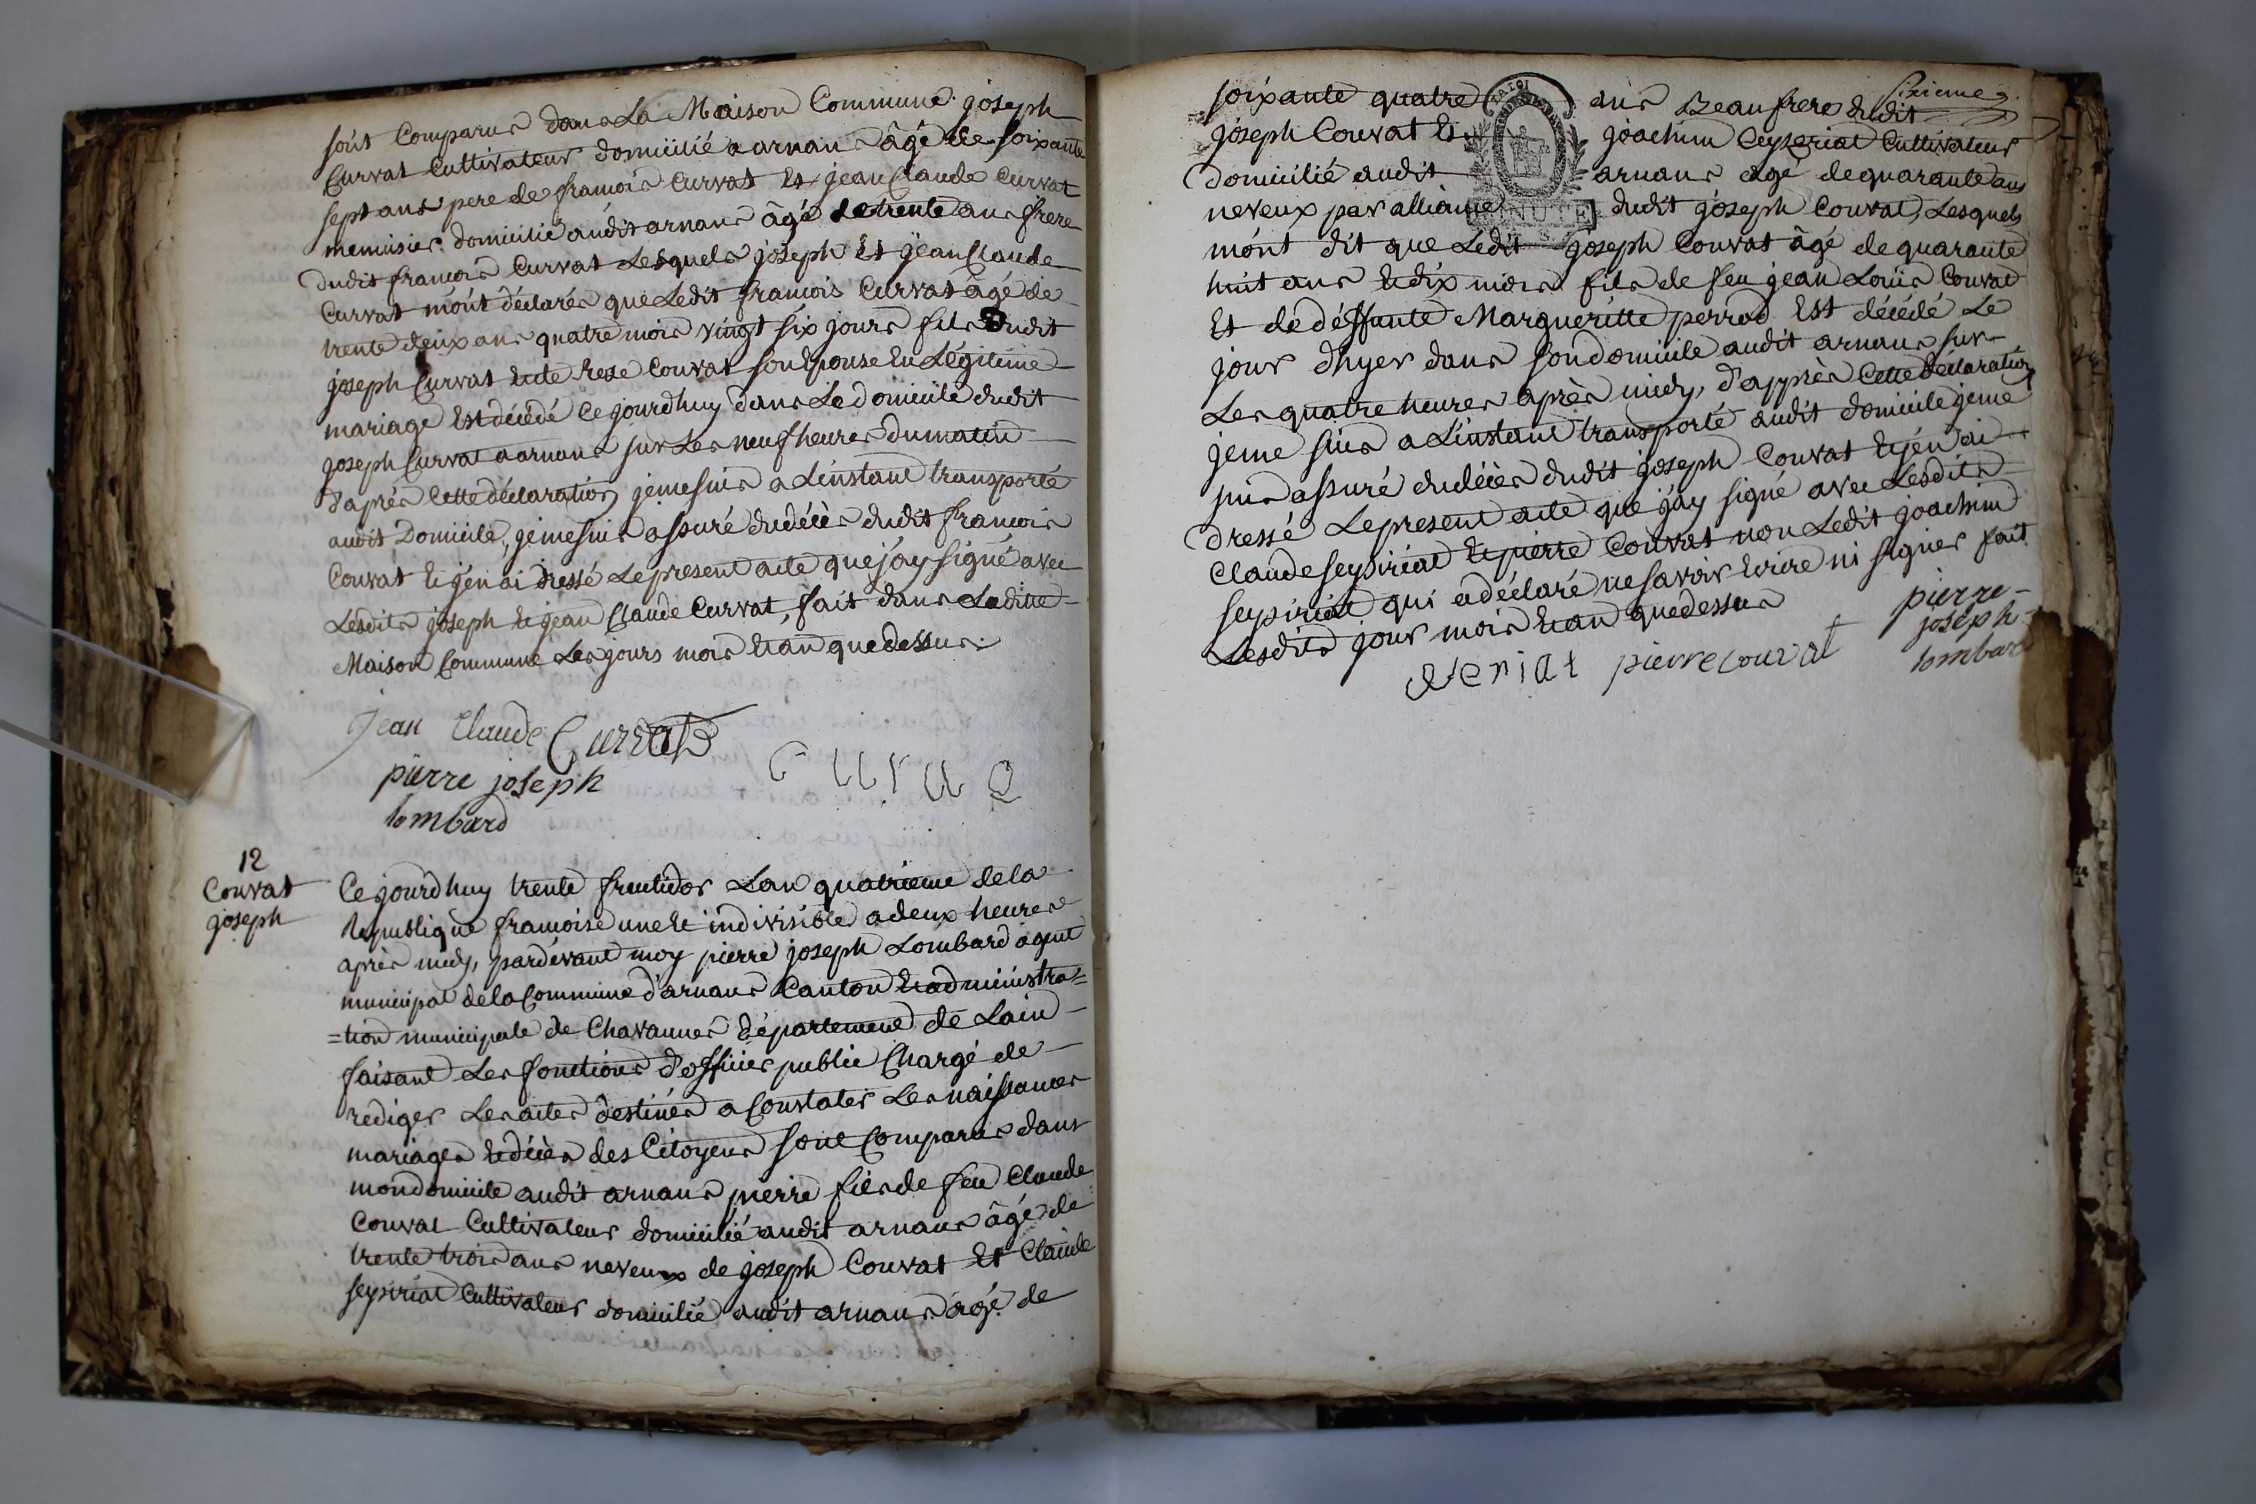 sont Comparus dans La Maison Commune joseph
Curvat Cultivateur domicilié a arnans âgé de soixante
sept ans pere de francois Curvat Et jean Claude Curvat
menuisier domicilié audit arnans âgé de trente ans frere
dudit francois Curvat Lesquels joseph Et jean Claude
Curvat mont déclarés que Ledit francois Curvat âgé de
trente deux ans quatre mois vingt six jours fils dudit
joseph Curvat Et de Rose Couvat son Epouse En Légitime
mariage Est décédé Ce jourdhuy dans Le domicile dudit
joseph Curvat a arnans sur Les neuf heures du matin
d'après Cette déclaration je me suis a Linstant transporté
audit Domicile, je me suis assuré du décès dudit francois
Couvat Et j'en ai dressé Le present acte que j'ay signé avec
Lesdits joseph Et jean Claude Curvat, fait dans Laditte
Maison Commune Les jours mois Et an que dessus.
jean Claude Curvat
pierre joseph
lombard
12
Couvat
joseph
Ce jourd huy trente fructidor Lan quatrieme de la
Republique francoise une Et indivisible a deux heures
après midy, pardevant moy pierre joseph Lombard agent
municipal de la Commune d'arnans Canton Et administra=
=tion municipale de Chavannes département de Lain
faisant Les fonctions d'officier public Chargé de
rediger Les actes destinés a Constater Les naissances
mariages Et décès des Citoyens sont Comparus dans
mon domicile audit arnans pierre fils de feu Claude
Couvat Cultivateur domicilié audit arnans âgé de
trente trois ans neveux de joseph Couvat Et Claude
seysiriat Cultivateur domicilié audit arnans âgé de
sixieme
soixante quatre ans Beau frere dudit
joseph Couvat Et joachim Ceyzeriat Cultivateur
domicilié audit arnans âgé de quarante ans
neveux par alliance dudit joseph Couvat, Lesquels
MINUTE
mont dit que Ledit joseph Couvat âgé de quarante
huit ans Et dix mois fils de feu jean Louis Couvat
Et de déffunte Marguéritte perrod Est décédé Le
jour dhyer dans son domicile audit arnans sur
Les quatre heures après midy, d'apprès Cette déclaration
je me suis a Linstant transporté audit domicile je me
suis assuré du décès dudit joseph Couvat Et j'en ai
dressé Le present acte que j'ay signé avec Lesdits
Claude seysiriat Et pierre Couvat non Ledit joachim
seysiriat qui a déclaré ne savoir Ecrire ni signer fait
Lesdits jour mois Et an que dessus
pierre couvat
pierre
joseph
lombard